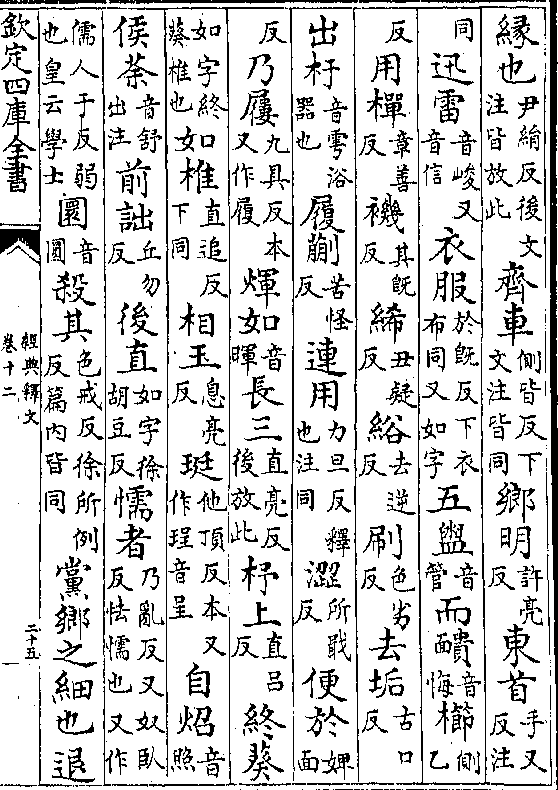 緣也尹絹反後文注皆放此齊車側皆反下文注皆同鄉明許亮反東首手又反注
同迅雷音峻又音信衣服於既反下衣布同又如字五盥音管而靧音悔櫛側乙
反用樿章善反禨其既反絺丑疑反綌去逆反刷色劣反去垢古口反
出杅音雩浴器也履蒯苦怪反連用力旦反釋也注同澀所戢反便於婢面
反乃屨九具反本又作履煇如音暉長三直亮反後放此杼上直呂反終葵
如字終葵椎也如椎直追反下同相玉息亮反珽他頂反本又作珵音呈自炤音照
侯荼音舒出注前詘丘勿反後直如字徐胡豆反懦者乃亂反又奴臥反怯懦也又作
儒人于反弱也皇云學士圜音圓殺其色戒反徐所例反篇內皆同黨鄉之細也退
欽定四庫全書
經典釋文
卷十二
二十五